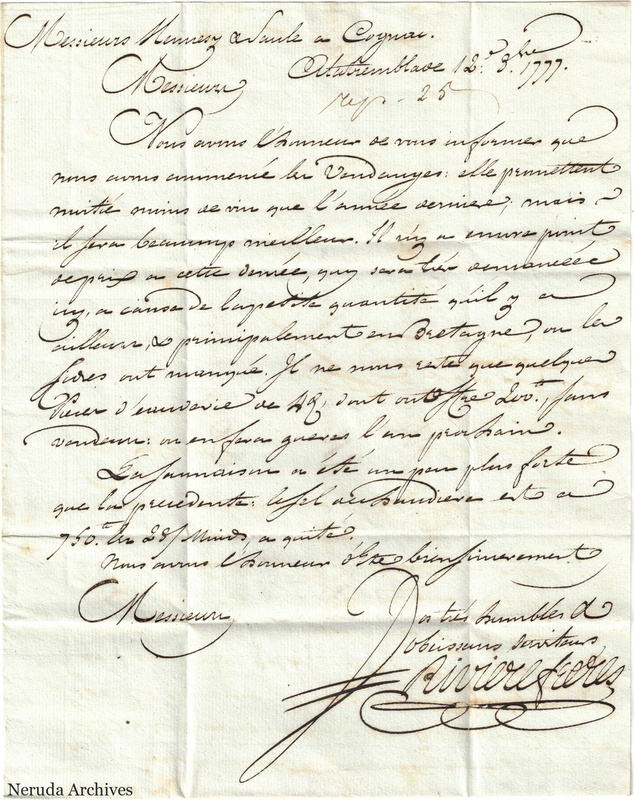 Messieurs Hennesy & Saule a Cognac.
Latremblade 12e. 8bre 1777.
Messieurs
rep - 25
Nous avons l'honneur de vous informer que
nous avons commencé les Vendanges: elle promettent
moitié moins de vin que l'année derniere, mais
il sera beaucoup meilleur. Il n'y a encore point
de prix a cette denrée, quy sera tres demandée
icy, a cause de la petite quantité qu'il y a
ailleurs, & principalement en Bretagne, ou les
sidres ont manqué. Il ne nous reste que quelque
Pieces d'eaudevie de 48, dont on offre 200lt, sans
vendeur: on en fera gueres l'an prochain.
La saunaison a été un peu plus forte
que la precedente: le sel de chaudiere est a
750lt les 28/ Muids, a quité
Nous avons l'honneur d'être bien sincerement
Messieurs
Vos très humbles &
obeissans serviteurs
Riviere freres
Neruda Archives